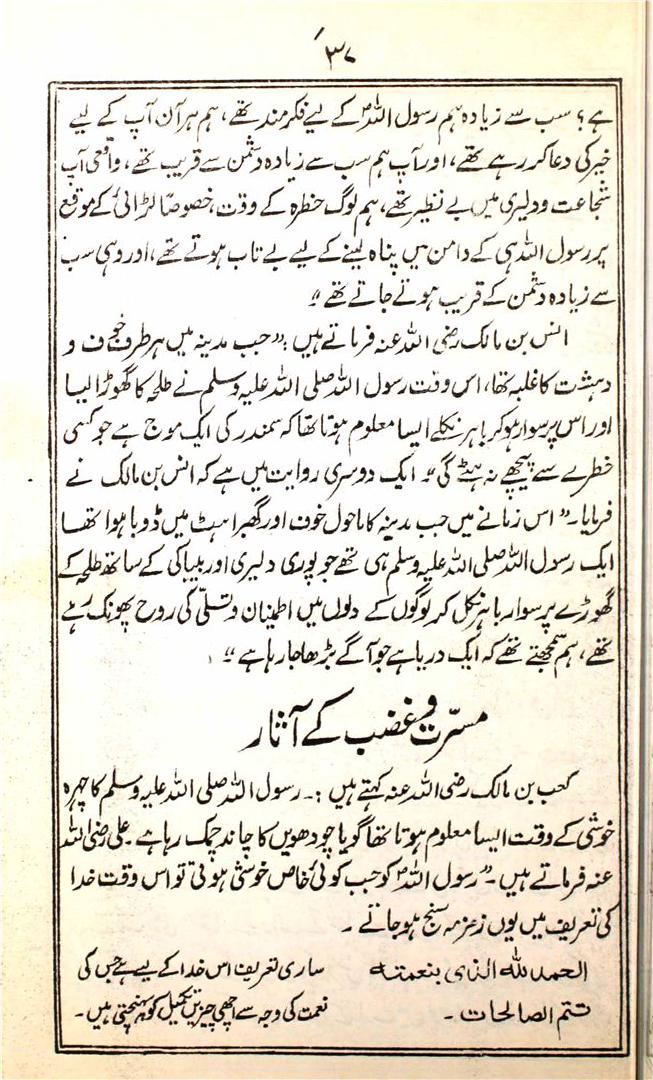 ۳۷
ہے؟ سب سے زیادہ ہم رسول اللہؐ کے لیے فکرمند تھے، ہم ہر آن آپ کے لیے
خیر کی دعا کر رہے تھے، اور آپ ہم سب سے زیادہ دشمن سے قریب تھے، واقعی آپ
شجاعت و دلیری میں بے نظیر تھے، ہم لوگ خطرہ کے وقت، خصوصاً لڑائی کے موقع
پر رسول اللہ ہی کے دامن میں پناہ لینے کے لیے بے تاب ہوتے تھے، اور وہی سب
سے زیادہ دشمن کے قریب ہوتے جاتے تھے"
انس بن مالک رضی اللہ عنہ فرماتے ہیں:" جب مدینہ میں ہر طرف خوف و
دہشت کا غلبہ تھا، اس وقت رسول اللہ صلی اللہ علیہ وسلم نے طلحہ کا گھوڑا لیا
اور اس پر سوار ہو کر باہر نکلے ایسا معلوم ہوتا تھا کہ سمندر کی ایک موج ہے جو کسی
خطرے سے پیچھے نہ ہٹے گی" ایک دوسری روایت میں ہے کہ انس بن مالک نے
فرمایا۔" اس زمانے میں جب مدینہ کا ماحول خوف اور گھبراہٹ میں ڈوبا ہوا تھا
ایک رسول اللہ صلی اللہ علیہ وسلم ہی تھے جو پوری دلیری اور بیباکی کے ساتھ طلحہ کے
گھوڑے پر سوار باہر نکل کر لوگوں کے دلوں میں اطمینان و تسلّی کی روح پھونک رہے
تھے، ہم سمجھتے تھے کہ ایک دریا ہے جو آگے بڑھا جا رہا ہے"
مسرّت و غضب کے آثار
کعب بن مالک رضی اللہ عنہ کہتے ہیں:۔ رسول اللہ صلی اللہ علیہ وسلم کا چہرہ
خوشی کے وقت ایسا معلوم ہوتا تھا گویا چودھویں کا چاند چمک رہا ہے۔ علی رضی اللہ
عنہ فرماتے ہیں۔" رسول اللہؐ کو جب کوئی خاص خوشی ہوتی تو اس وقت خدا
کی تعریف میں یوں زمزمہ سنج ہو جاتے۔
الحمد للہ الذی بنعمتہ ساری تعریف اس خدا کے لیے ہے جس کی
تتم الصالحات۔ نعمت کی وجہ سے اچھی چیزیں تکمیل کو پہنچتی ہیں۔